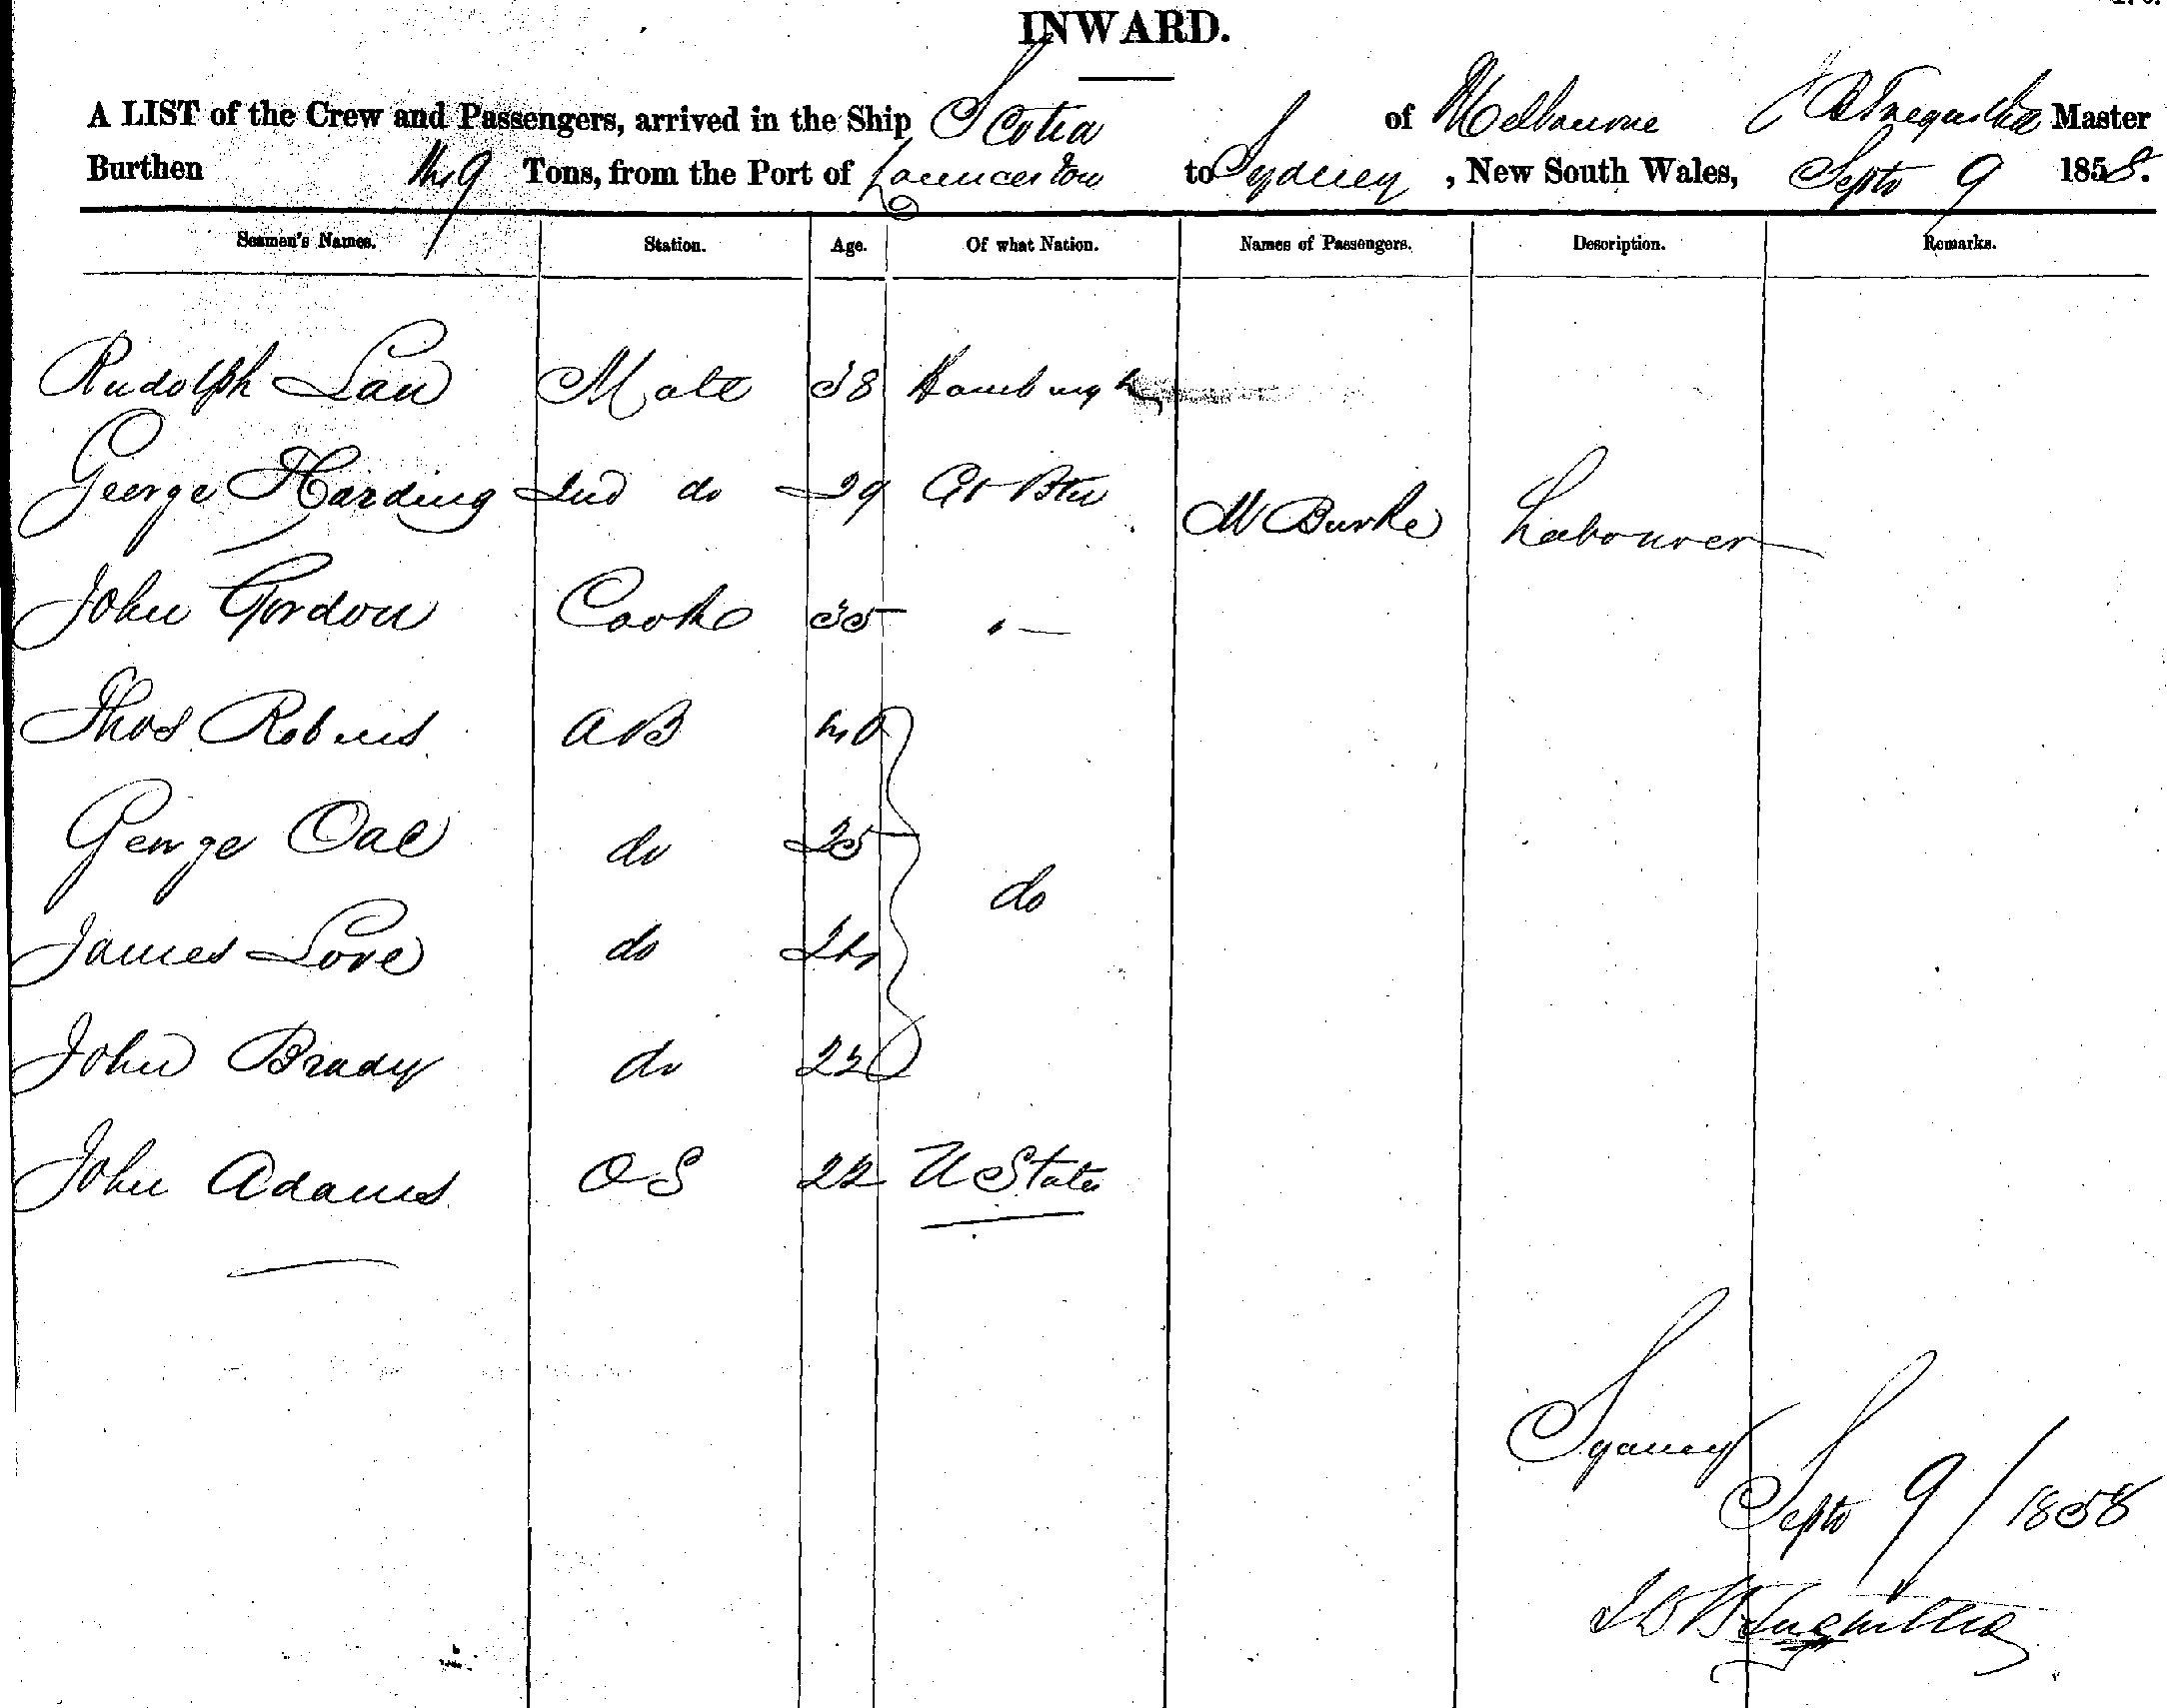 INWARD.
A LIST of the Crew and Passengers, arrived in the Ship Scotia of Melbourne Master
Burthen 149 Tons, from the Port of Launceston to Sydney, New South Wales, Septr 9 1858.
Seamen's Names. Station. Age. Of what Nation. Names of Passengers. Description. Remarks.
Rudolph Lau Mate 38 Hamburgh
George Harding 2nd do 29 Gt Btn
M Burke Labourer
John Gordon Cook 35 " —
Thos Robins AB 40
George Oal do 25
do
James Love do 24
John Brady do 22
John Adams O S 22 U States
Sydney
Septr 9 / 1858